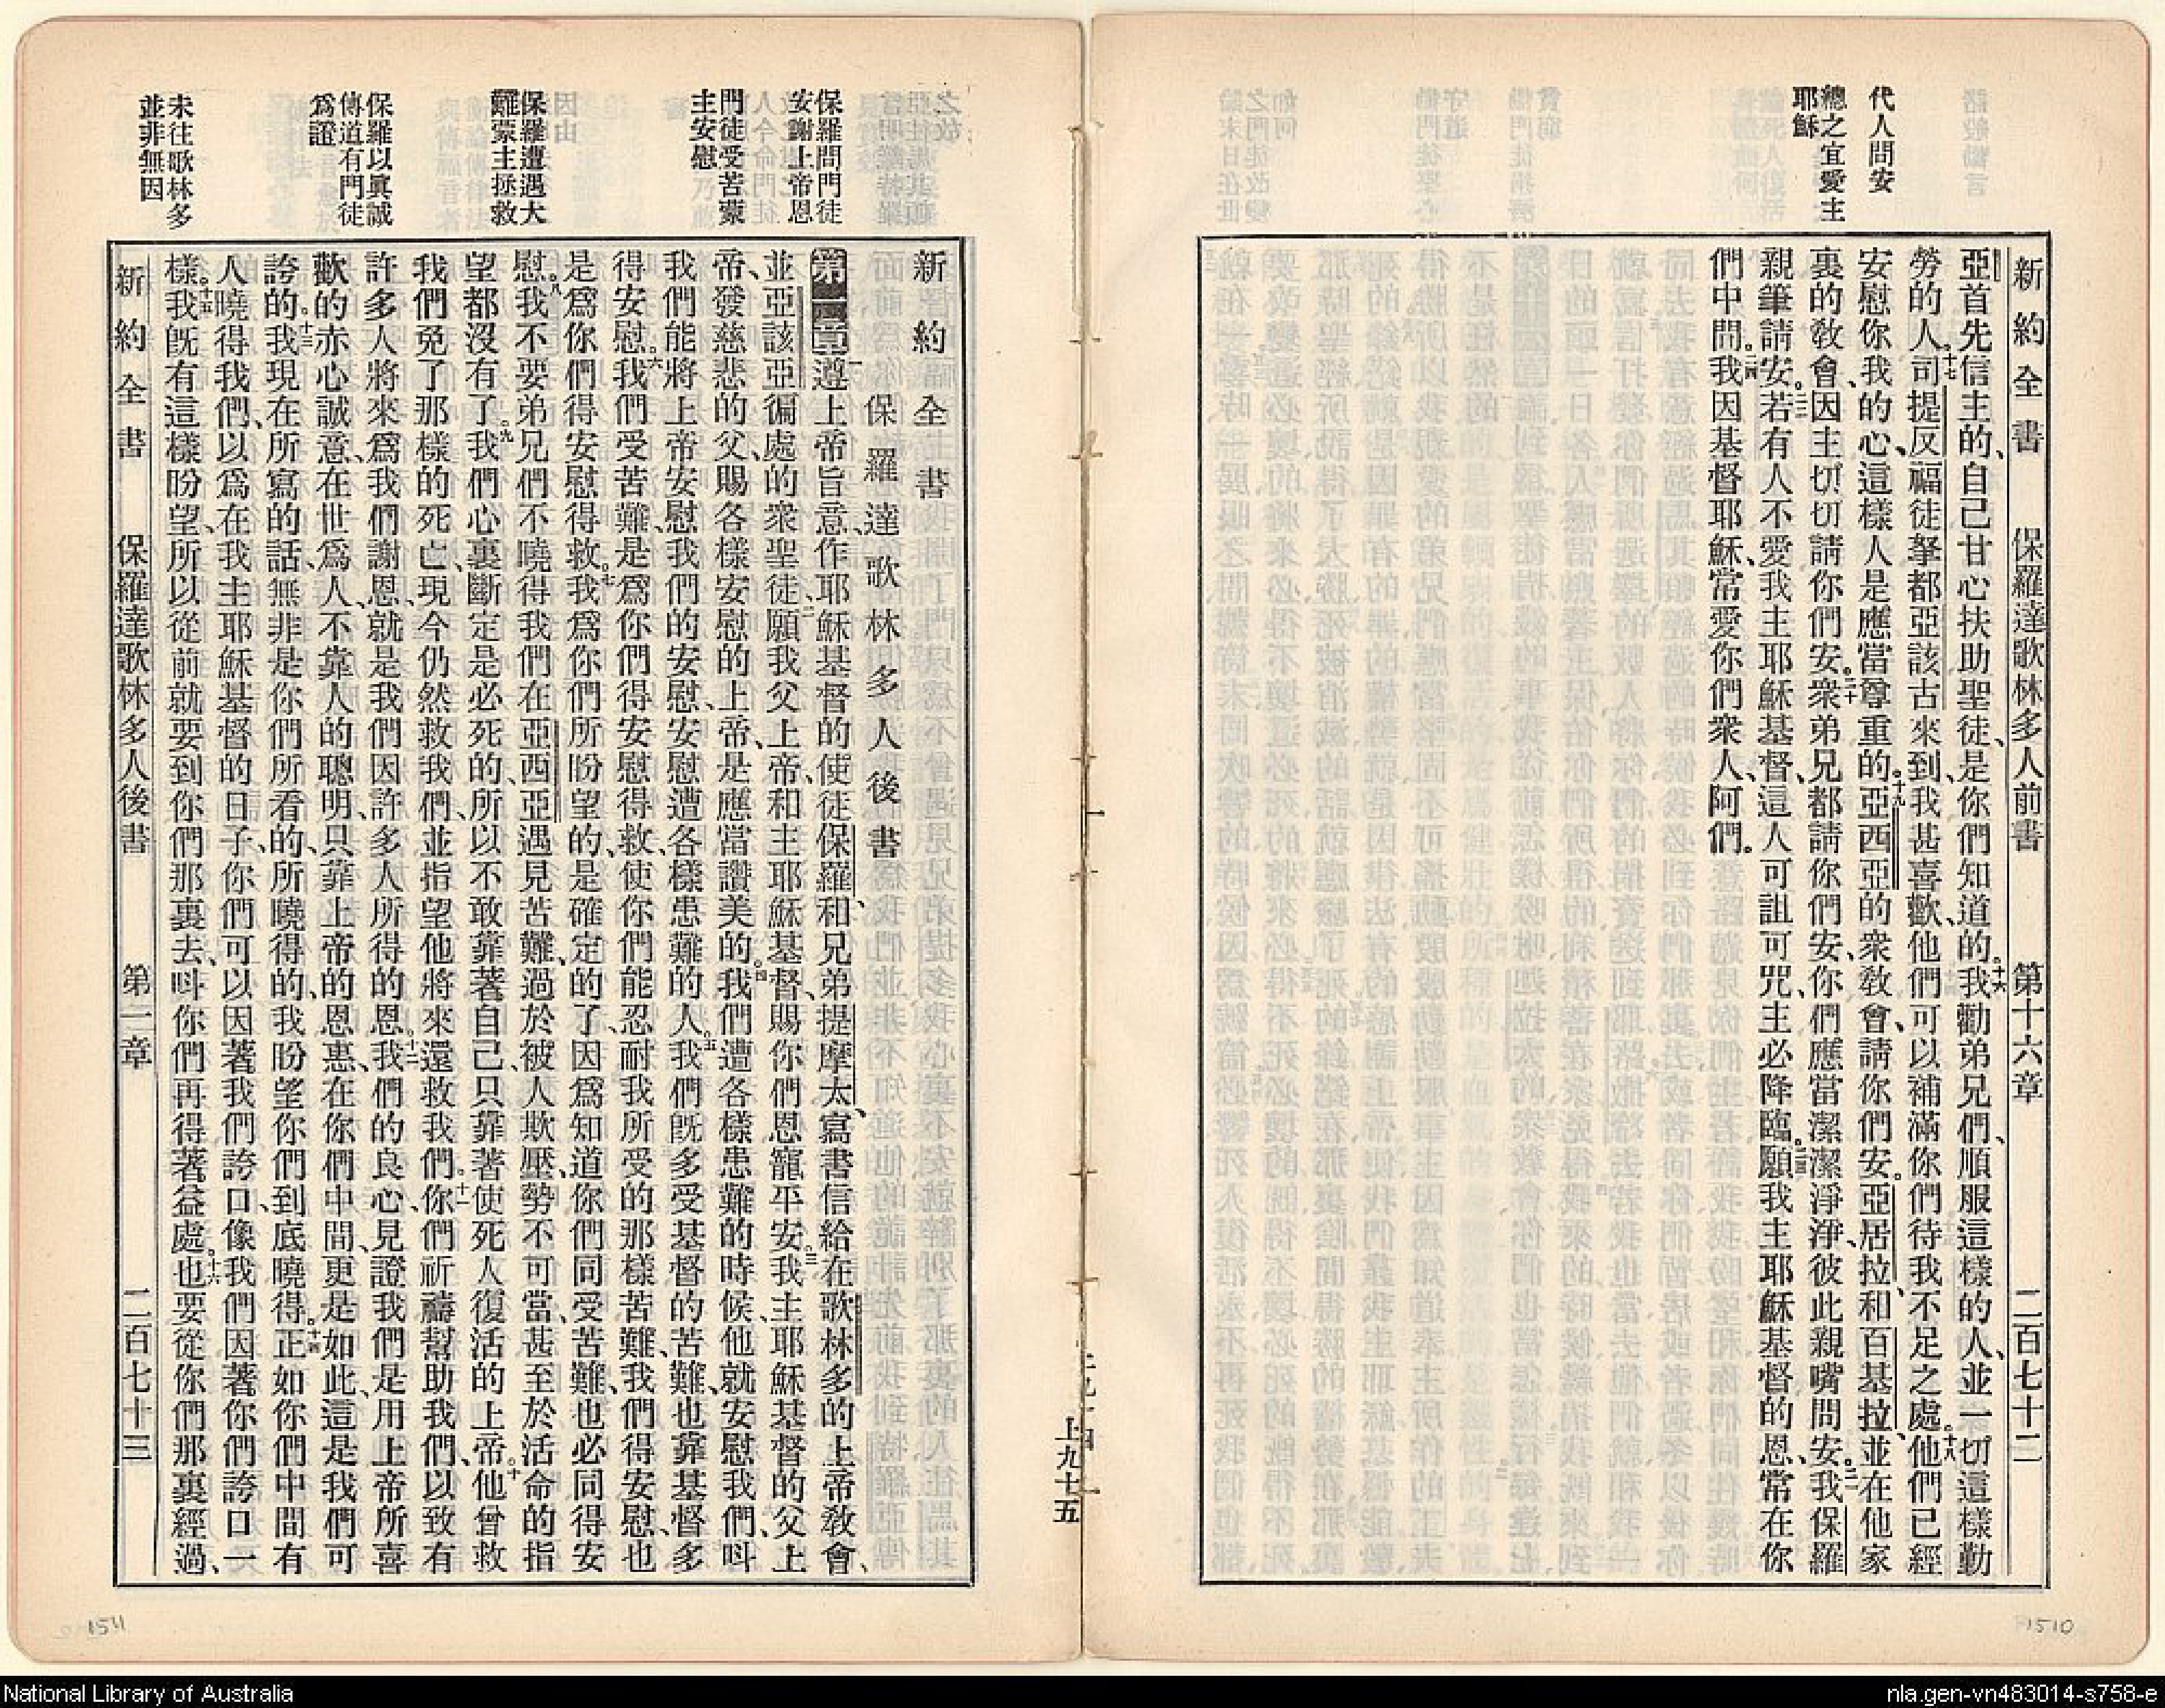 代人問安
總之宜愛主
耶穌
新約全書 保羅達歌林多人前書 第十六章 二百七十二
亞首先信主的、自己甘心扶助聖徒、是你們知道的。十六我勸弟兄們、順服這樣的人、並一切這樣勤
勞的人。十七司提反福徒拏都亞該古來到、我甚喜歡、他們可以補滿你們待我不足之處。十八他們已經
安慰你我的心、這樣人是應當尊重的。十九亞西亞的衆敎會、請你們安。亞居拉、和百基拉、並在他家
裏的敎會、因主切切請你們安。二十衆弟兄都請你們安、你們應當潔潔淨淨、彼此親嘴問安。二一我保羅
親筆請安。二二若有人不愛我主耶穌基督、這人可詛可咒、主必降臨。二三願我主耶穌基督的恩、常在你
們中間。二四我因基督耶穌、常愛你們衆人、阿們。
上九十五
保羅問門徒
安謝上帝恩
門徒受苦蒙
主安慰
保羅遭遇大
難蒙主拯救
保羅以眞誠
傳道有門徒
爲證
未往歌林多
並非無因
新約全書
保羅達歌林多人後書
第一章一遵上帝旨意、作耶穌基督的使徒保羅、和兄弟提摩太、寫書信給在歌林多的上帝敎會、
並亞該亞徧處的衆聖徒、二願我父上帝、和主耶穌基督、賜你們恩寵平安。三我主耶穌基督的父上
帝、發慈悲的父、賜各樣安慰的上帝、是應當讚美的。四我們遭各樣患難的時候、他就安慰我們、呌
我們能將上帝安慰我們的安慰、安慰遭各樣患難的人。五我們旣多受基督的苦難、也靠基督多
得安慰。六我們受苦難、是爲你們得安慰得救、使你們能忍耐我所受的那樣苦難、我們得安慰、也
是爲你們得安慰得救。七我爲你們所盼望的、是確定的了、因爲知道你們同受苦難、也必同得安
慰。八我不要弟兄們不曉得我們在亞西亞遇見苦難、過於被人欺壓、勢不可當、甚至於活命的指
望都沒有了。九我們心裏斷定是必死的、所以不敢靠著自己、只靠著使死人復活的上帝。十他曾救
我們免了那樣的死亡、現今仍然救我們、並指望他將來還救我們。十一你們祈禱幫助我們、以致有
許多人將來爲我們謝恩、就是我們因許多人所得的恩。十二我們的良心、見證我們是用上帝所喜
歡的赤心誠意、在世爲人、不靠人的聰明、只靠上帝的恩惠、在你們中間、更是如此、這是我們可
誇的。十三我現在所寫的話、無非是你們所看的、所曉得的、我盼望你們到底曉得。十四正如你們中間有
人曉得我們、以爲在我主耶穌基督的日子、你們可以因著我們誇口、像我們因著你們誇口一
樣。十五我旣有這樣盼望、所以從前就要到你們那裏去、呌你們再得著益處。十六也要從你們那裏經過、
新約全書 保羅達歌林多人後書 第一章 二百七十三
1511
1510
National Library of Australia
nla.gen-vn483014-s758-e